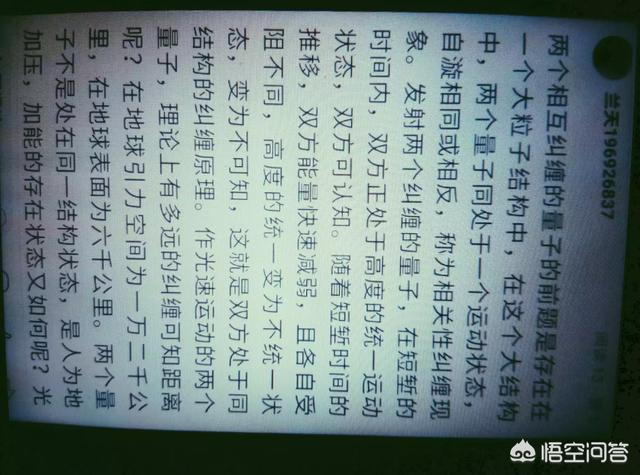 兰天196926837
两个相互纠缠的量子的前题是存在在
一个大粒子结构中，在这个大结构
中，两个量子同处于一个运动状态，
自漩相同或相反，称为相关性纠缠现
象。发射两个纠缠的量子，在短堑的
时间内，双方正处于高度的统一运动
状态，双方可认知。随着短堑时间的
推移，双方能量快速减弱，且各自受
阻不同，高度的统一变为不统一状
态，变为不可知，这就是双方处于同
结构的纠缠原理。作光速运动的两个
量子，理论上有多远的纠缠可知距离
呢？在地球引力空间为一万二千公
里，在地球表面为六千公里。两个量
子不是处在同一结构状态，是人为地
加压，加能的存在状态又如何呢？光
悟空问答